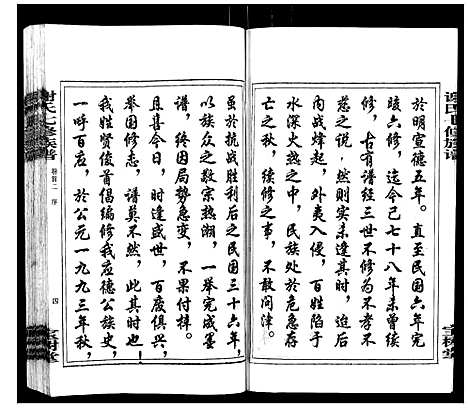 谢氏七修族谱
宝树堂
於明宣德五年。直至民国六年完
竣六修，迄今已七十八年未曾续
修，古有谱经三世不修为不孝不
慈之说，然则实未逢其时，迫后
内战烽起，外夷入侵，百姓陷于
水深火热之中，民族处於危急存
亡之秋，续修之事，不敢问津。
虽於抗战胜利后之民国三十六年，
以族众之敦宗热潮，一举完成墨
谱，终因局势急变，不果付梓。
且喜今日，时逢盛世，百废俱兴，
举国修志，谱莫不然，此其时也！
我姓贤俊首倡编修我应德公族史，
一呼百应，於公元一九九三年秋，
谢氏七修族谱
卷首二 序
四
宝树堂